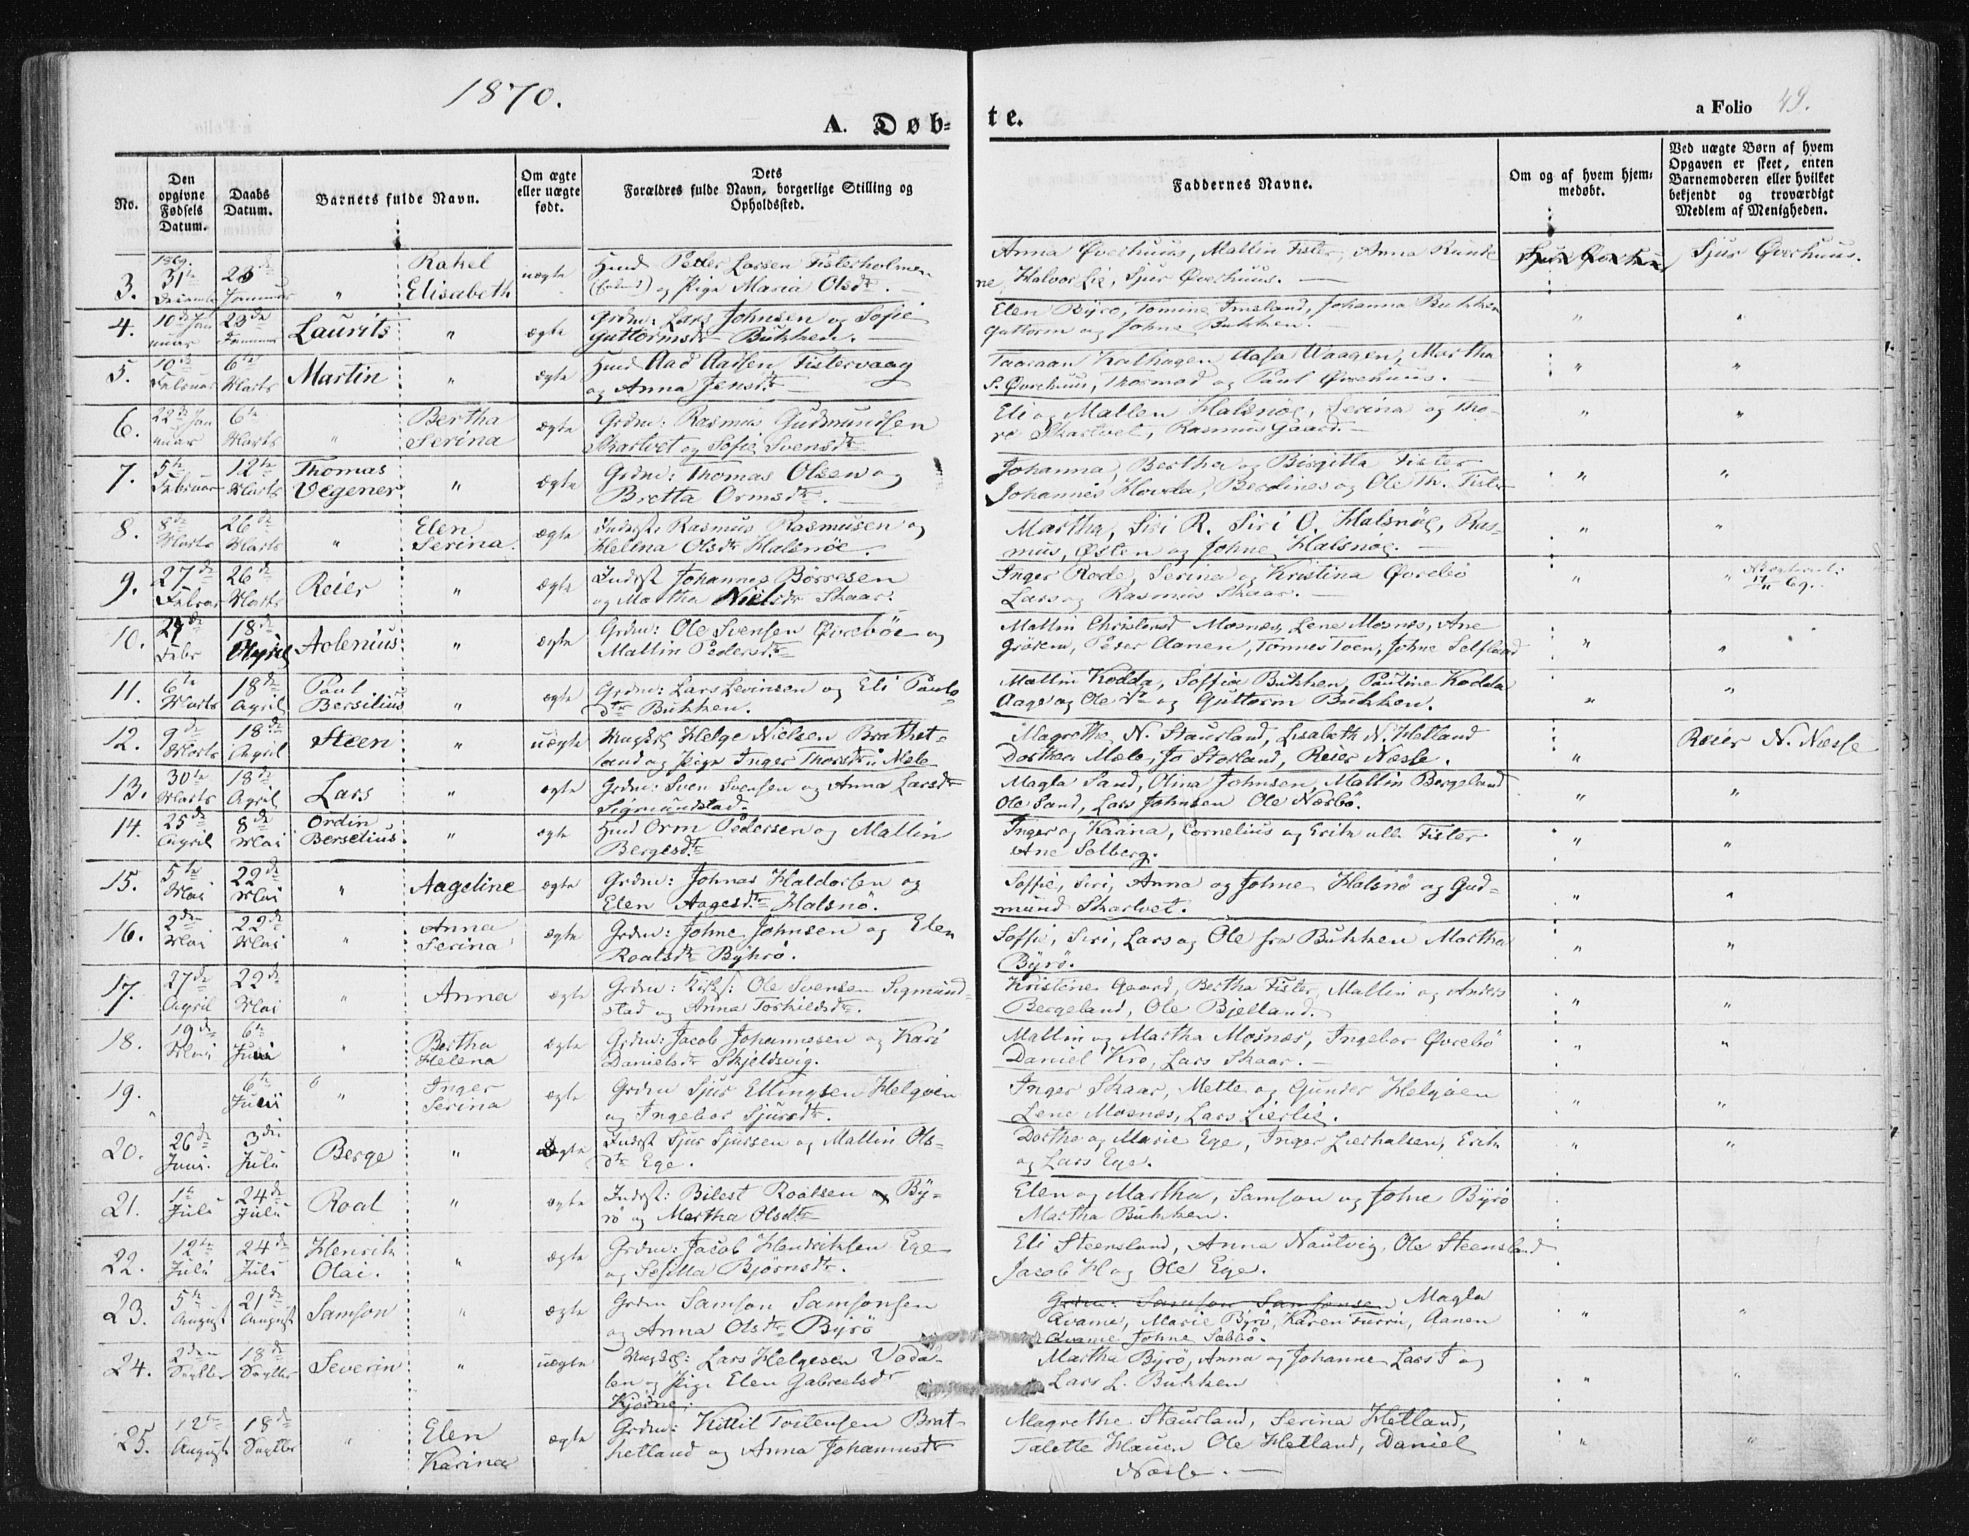 1870.
A. Døb-
te.
a Folio 49.
No.
Den opgivne Fødsels Datum.
Daabs Datum.
Barnets fulde Navn.
Om ægte eller uægte født.
Dets Forældres fulde Navn, borgerlige Stilling og Opholdssted.
Faddernes Navne.
Om og af hvem hjemmedøbt.
Ved uægte Børn af hvem Opgaven er skeet, enten Barnemoderen eller hvilket bekjendt og troværdigt Medlem af Menigheden.
3. 1869. 31te Decembr 23de Januar " Rakel Elisabeth uægte Husmd Peder Larsen Fisterholmen og Pige Maria Olsdtr. Anna Øverhuus, Mallin Fister, Anna Kunde
ne, Halvor Lie, Sjur Øverhuus. Sjur Øverhuus.
4. 10de Januar 23de Januar Laurits " ægte Grdm: Lars Johnsen og Sofie Guttormsdtr Bukken. Elen Byrø, Tomine Fmsland, Johanna Bukken
Guttorm og Johne Bukken. " "
5. 10de Februar 6te Marts Martin " ægte Husmd Aad Aadsen Fistervaag og Anna Jensdtr Kalhagen, Aasa Waagen, Martha
S. Øvrehuus, Thormod og Paul Øvrehuus. " "
6. 22de Januar 6te Marts " Bertha Serina ægte Grdm: Rasmus Gudmundsen Skartvet og Sofie Svensdtr Eli og Mallen Halsnøe, Serina og Tho-
re Skartvet, Rasmus Gaard. " "
7. 5te Februar 12te Marts Thomas Vegener " ægte Grdm: Thomas Olsen og Bretta Ormsdtr. Johanna, Bertha og Birgitta Fister
Johannes Hovda, Berdines og Ole Th. Fister " "
8. 8de Marts 26de Marts " Elen Serina. ægte Inderst: Rasmus Rasmusen og Helena Olsdtr Halsnøe. Martha, Siri R. Siri O. Halsnøe, Ras-
mus, Østen og Johne Halsnøe. " "
9. 27de Februar 26de Marts Reier " ægte Inderst Johannes Børresen og Martha Nielsdtr Skaar. Inger Rode, Serina og Kristina Øvrebø
Lars og Rasmus Skaar. " "
10. 24de Febr 18de April Aolenius " ægte Grdm: Ole Svensen Øvrebøe og Mallin Pedersdtr Mallin Christensd Mosnes, Lene Mosnes, Ane
Grøkem, Peder Aanen, Tønnes Toen, Johne Selfland " "
11. 6te Marts 18de April Paul Bersilius " ægte Grdm: Lars Levinsen og Eli Pauls-
dtr Bukken. Mallin Kodda, Soffia Bukken, Pauline Kodda
Aage og Ole og Guttorm Bukken. " "
12. 9de Marts 18de April Steen " uægte Ungkrl Helge Nielsen Brathet-
land og Pige Inger Thorsdtr Mæle Magrethe N. Staurland, Lisabeth N. Helland
Dorthea Mæle, Jo Storland, Reier Næsse. " Reier N. Næsse
13. 30te Marts 18de April Lars " ægte Grdm: Sven Svensen og Anna Larsdtr
Sigmundstad. Magla Sand, Olina Johnsen, Mallin Bergeland
Ole Sand, Lars Johnsen Ole Nærbø. " "
14. 25de April 8de Mai Ordin Berselius " ægte Husmd Orm Pedersen og Mallin
Bergesdtr Inger og Karina, Cornelius og Erik alle Fister
Ane Solberg. " "
15. 5te Mai 22de Mai " Aageline ægte Grdm: Johnas Haldorsen og
Elen Aagesdtr Halsnø. Soffie, Siri, Anna og Johne Halsnø og Gud-
mund Skartvet. " "
16. 2den Mai 22de Mai " Anna Serina ægte Grdm: Johne Johnsen og Elen
Roalsdtr Byhrø. Soffie, Siri, Lars og Ole fra Bukken Martha
Byrø. " "
17. 27de April 22de Mai " Anna ægte Grdm: Ole Svensen Sigmund-
stad og Anna Torkildsdtr. Kristine Gaard, Bertha Fister, Mallin og Anders
Bergeland, Ole Bjelland. " "
18. 19de Mai 6te Juni " Bertha Helena ægte Grdm: Jacob Johannesen og Kari
Danielsdtr Skjeldsvig. Mallin og Martha Mosnæs, Ingebor Øvrebø
Daniel Kro, Lars Skaar. " "
19. 6te Juni " Inger Serina ægte Grdm Sjur Ellingsen Helgøen
og Ingebor Sjursdtr. Inger Skaar, Mette og Gunder Helgøen
Lene Mosnæs, Lars Lierlie. " "
20. 26de Juni. 3die Juli Berge " ægte Inderst Sjur Sjursen og Mallin Ols-
dtr Ege. Dortha og Marie Ege, Inger Lierhalsen, Erik
og Lars Ege. " "
21. 1te Juli 24de Juli Roal " ægte Inderst: Bilest Roalsen By-
rø og Martha Olsdtr Elen og Martha, Samson og Johne Byrø
Martha Bukken.
22. 12te Juli 24de Juli Henrik Olai. " ægte Grdm: Jacob Hendriksen Ege
og Sesilla Bjørnsdtr. Eli Steensland, Anna Nautvig, Ole Steensland
Jacob H og Ole Ege.
23. 5te August 21de August Samson " ægte Grdm Samson Samsonsen
og Anna Olsdtr Byrø Grdm: Samson Samsonsen Magla
Qvame, Marie Byrø, Karen Furru, Aanen
Qvame Johne Sæbbø. " "
24. 2den Septbr 18de Septbr Severin " uægte Ungkrl: Lars Helgesen Vada-
len og Pige Elen Gabrielsdtr
Kjørne. Martha Byrø, Anna og Johanne Lars T og
Lars L. Bukken " "
25. 12te August 18de Septbr " Elen Karina ægte Grdm: Kittil Tostensen Brat-
hetland og Anna Johannesdtr Magrethe Staurland, Serina Hetland,
Talette Hauen Ole Hetland, Daniel
Næsse. " "